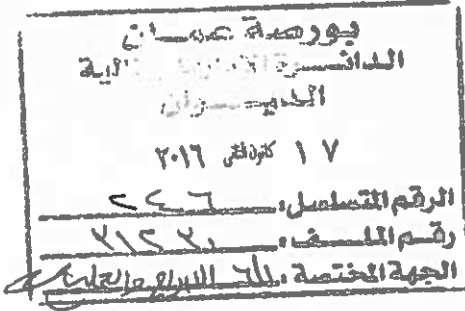 بورصة عمان
الدائـــرة الإدارية والمالية
الديـــوان
١٧ كانون الثاني ٢٠١٦
الرقم المتسلسل: ٢٤٦
رقم الملف: ٣١٢٢٠
الجهة المختصة: